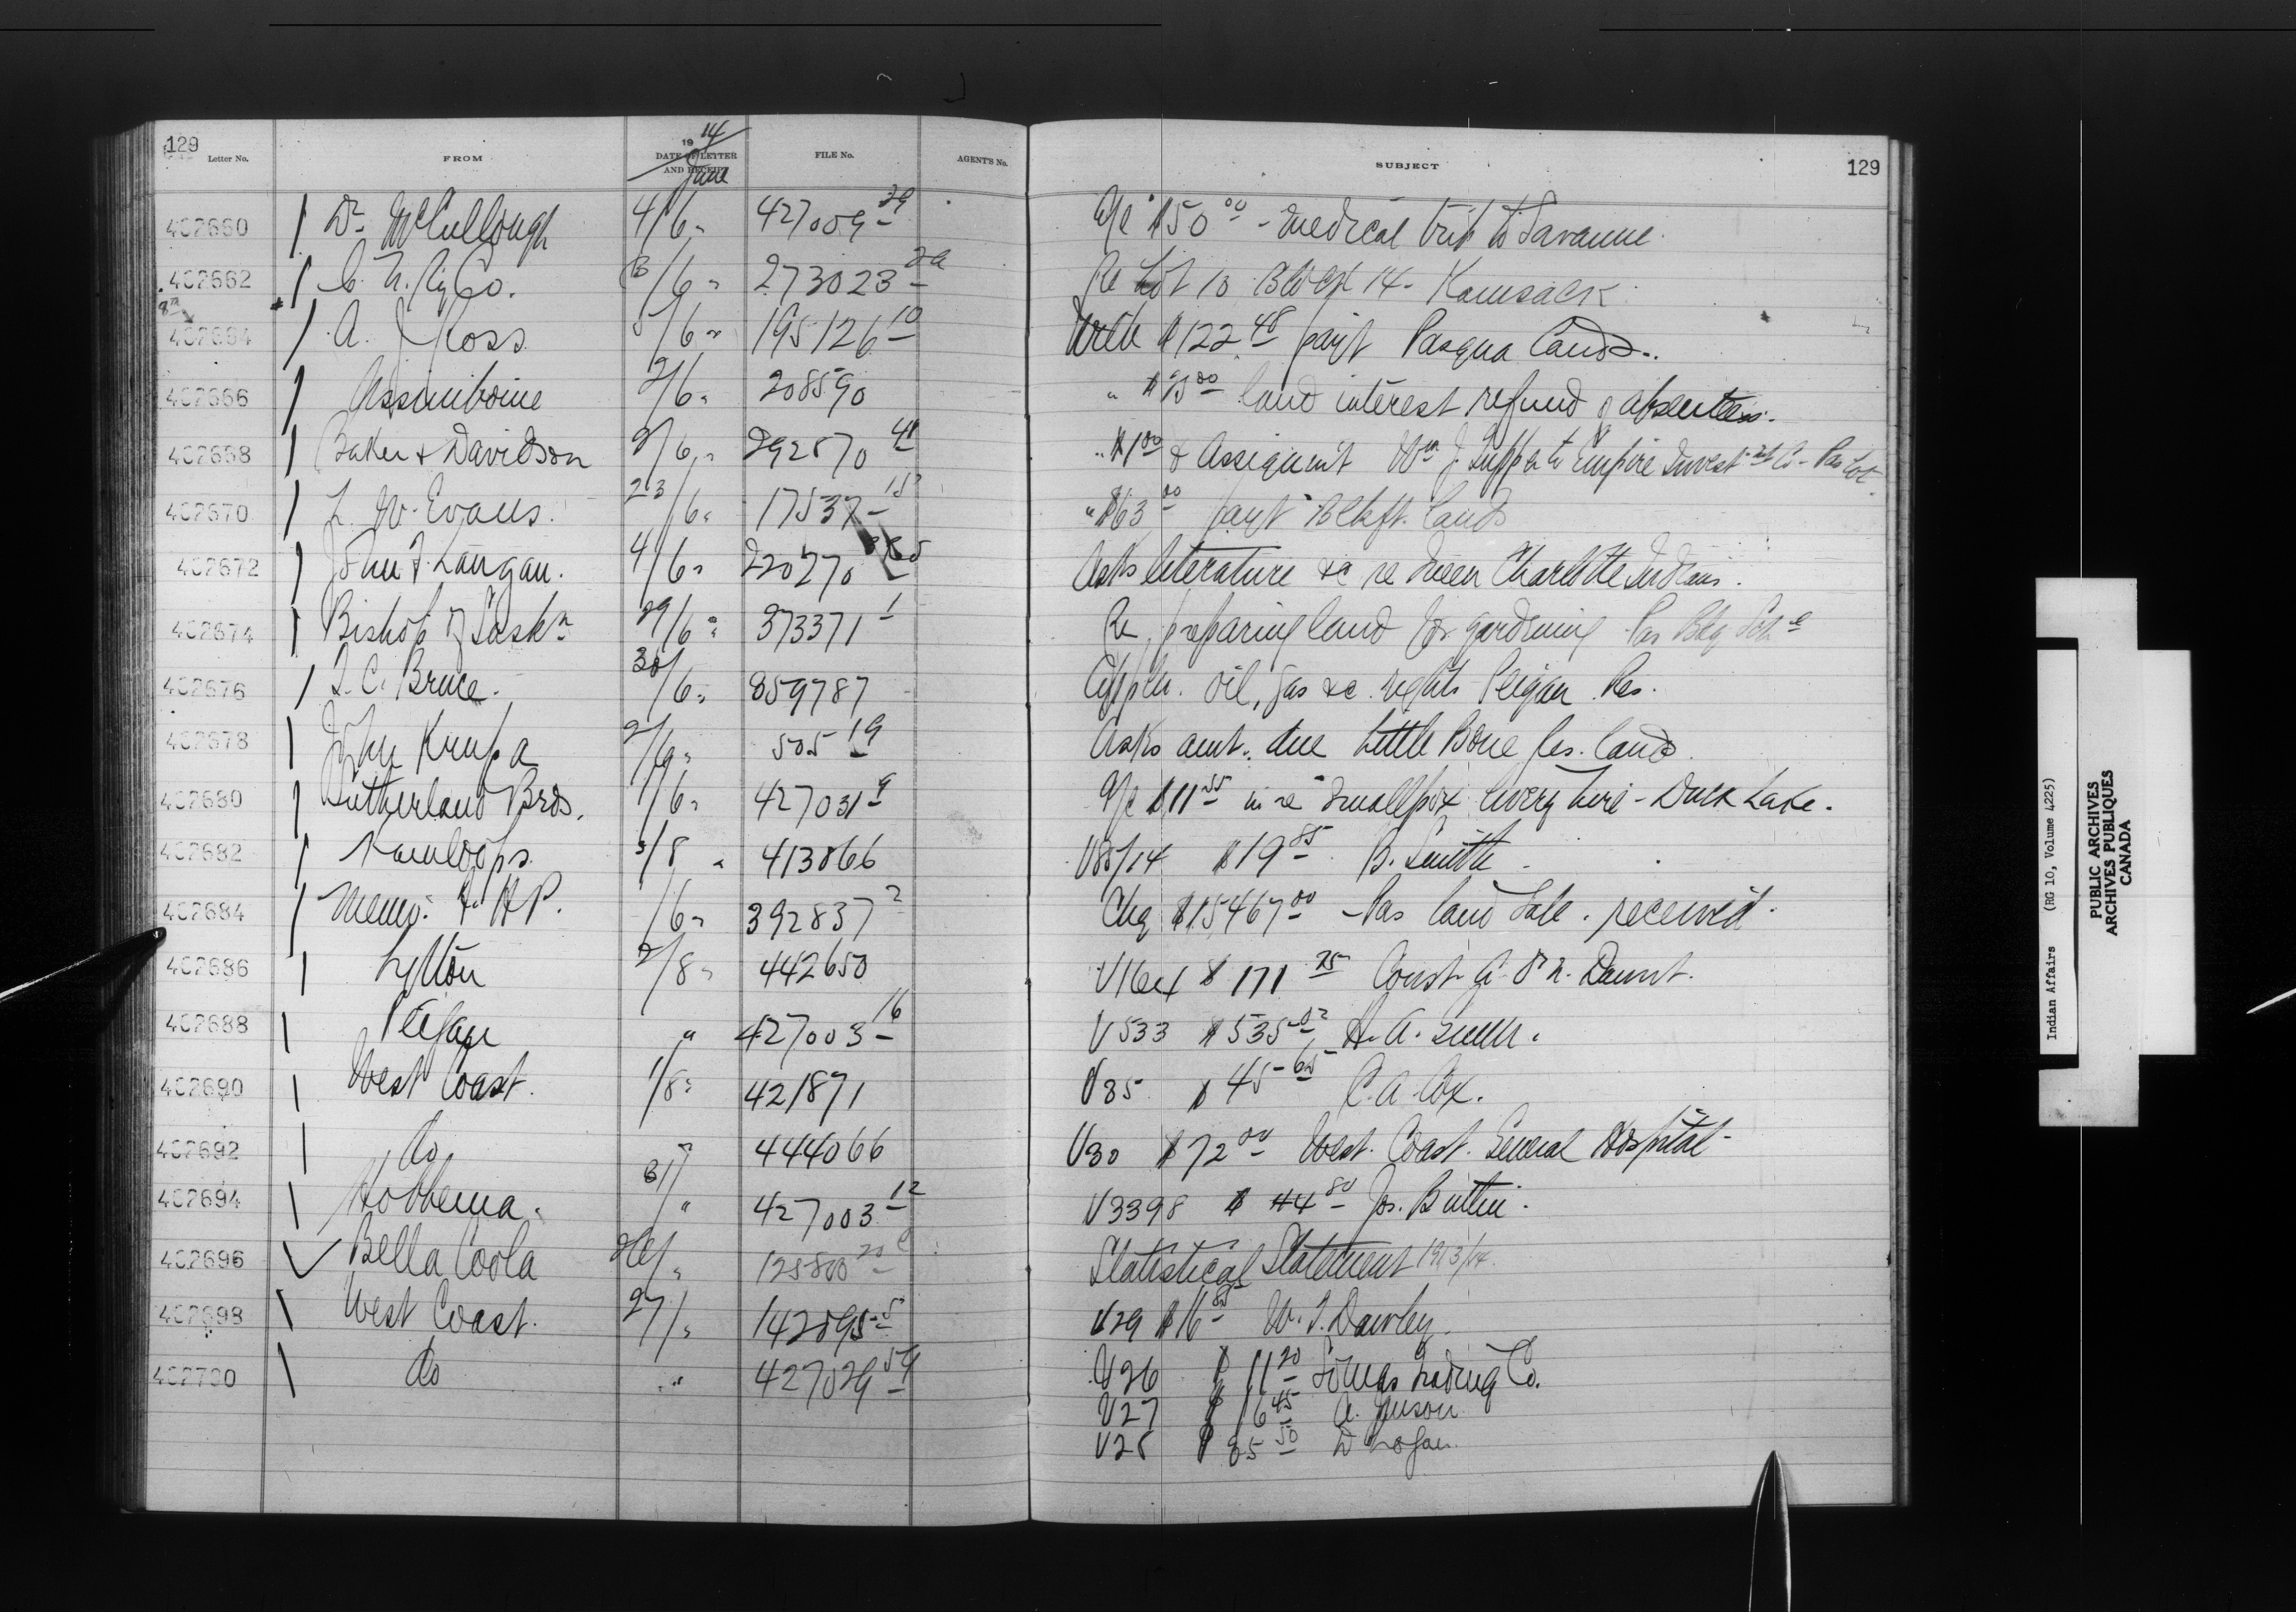 129
Letter No. FROM 1914 DATE OF LETTER AND RECEIPT June FILE No. AGENT'S No. SUBJECT 129
402660 Dr McCullough 4/6 " 427009-29 a/c $50 00 - medical trip to Savanne.
402662 C. N. Ry Co. 3/6 " 273023-2a Re Lot 10 Block 14 - Kamsack
402664 A. J. Ross 5/6 " 195126-10 With $122 48 payt Pasqua Lands.
402666 Assiniboine 2/6 " 208590 " land interest refund of absentees.
402668 Baker & Davidson 2/6 " 292570 41 " $1 00 & Assignment Wm J. to Empire Investmt Co - Pas Lot
402670 L. W. Evans. 23/6 " 17537-15 " $63 00 payt Blkft. lands
402672 John F. Langan. 4/6 " 220270 Asks literature &c re Queen Charlotte Indians.
402674 Bishop of Saskn 29/6 " 373371 1 Re preparing land for gardening Pas Bdg Schl
402676 T. C. Bruce. 30/6 " 859787 Appln. oil, gas &c. rights Peigan Res.
402678 John Krupa 2/6 " 505 19 Asks amt. due Little Bone Res. land
402680 Sutherland Bros. 1/6 " 427031 9 a/c $11 55 in re Smallpox livery hire - Duck Lake.
402682 Kamloops. 3/8 " 413866 V85/14 $19 85 B. Smith
402684 Memo. F. H. P. /6 " 392837 2 Chq $15467 00 - Pas land Sale. received.
402686 Lytton 2/8 " 442650 V164 $171 75 Const. A. P. N. Daunt.
402688 Peigan " 427003-16 V533 $535 02 H. A. Gunn.
402690 West Coast. 1/8 " 421871 V35 $45-65 C. A. Cox.
402692 do " 444066 V30 $72 00 West. Coast. General Hospital-
402694 Hobbema. 31/ " 427003 12 V3398 $44 80 Jos. Buttin.
402696 Bella Coola 26/ " 125800 20 Statistical Statement 1913/14.
402698 West Coast. 27/ " 142895-5 V29 $16 85 W. T. Dawley.
402700 do " 427029 54 V26 $11 20 Somas Trading Co.
V27 $16 45 A.
V28 $85 50 D Logan.
Indian Affairs (RG 10, Volume 4225)
PUBLIC ARCHIVES
ARCHIVES PUBLIQUES
CANADA